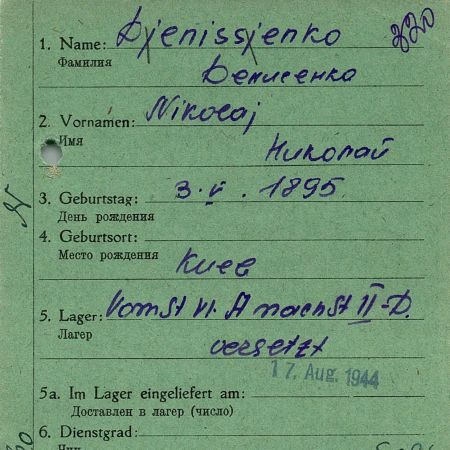 320
1. Name: Djenissjenko
Фамилия
Денисенко
2. Vornamen: Nikolaj
Имя
Николай
N
3. Geburtstag: 3. V. 1895
День рождения
4. Geburtsort:
Место рождения
Киев
5. Lager: Vom St VI. A nach St II-D.
Лагер
versetzt
17. Aug. 1944
5a. Im Lager eingeliefert am:
Доставлен в лагер (число)
6. Dienstgrad:
Чин